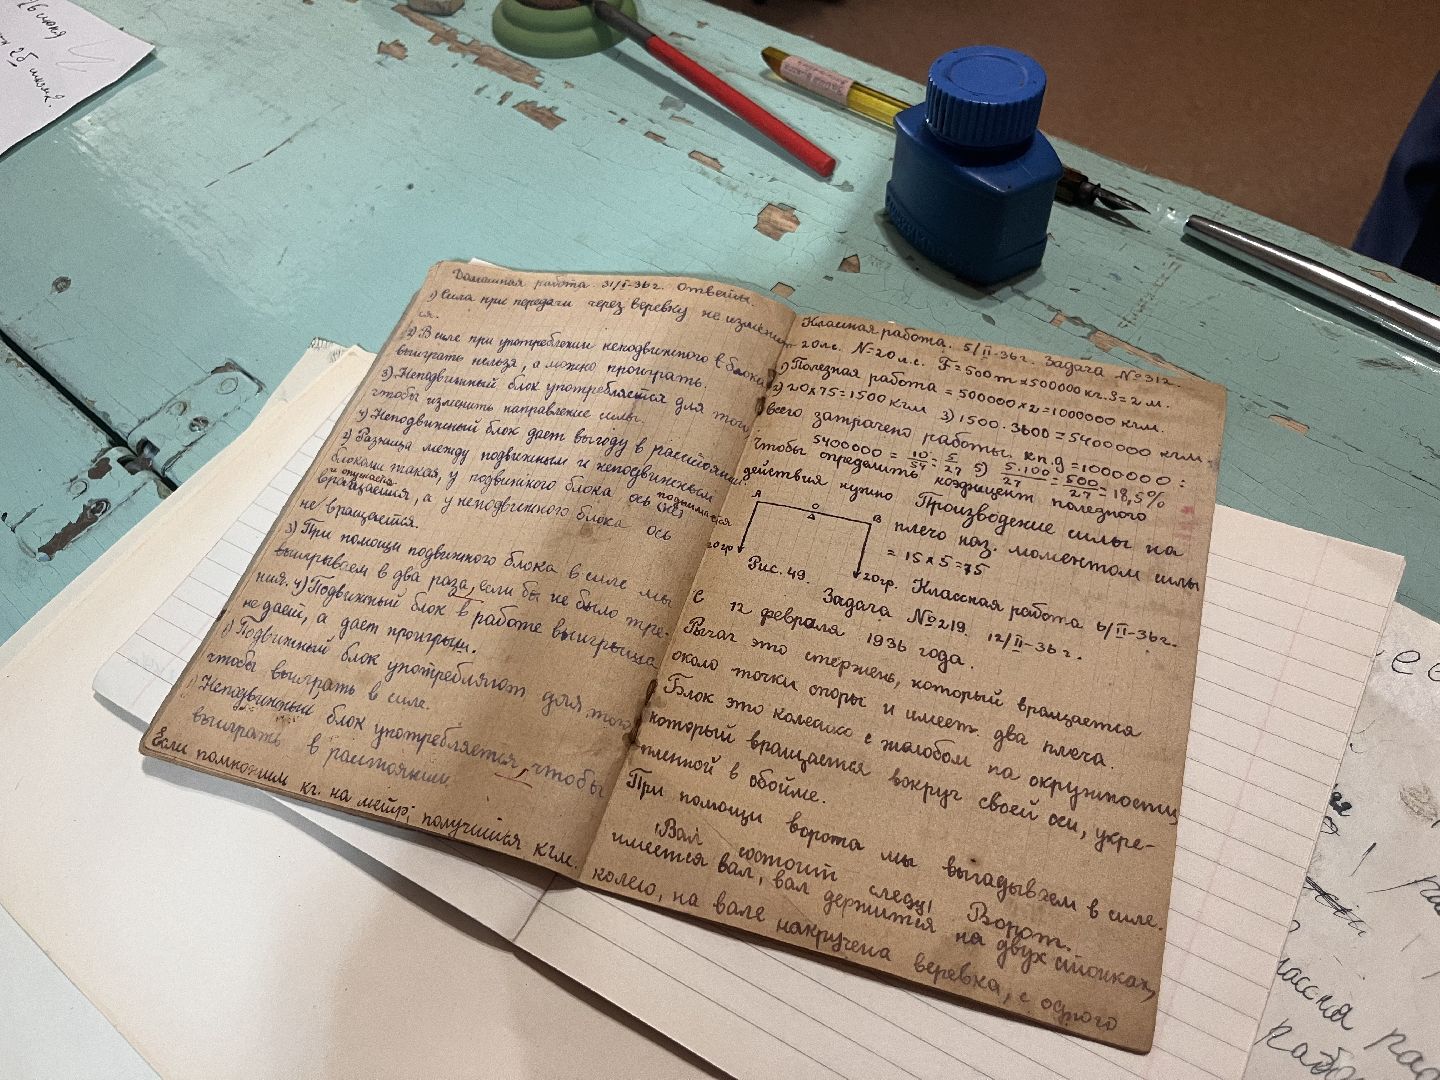 26 июня
Домашная работа. 31/II-36г. Ответы.
1) Сила при передачи через веревку не изменит-
ся.
2) В силе при употреблении неподвижного в блока
выиграть нельзя, а можно проиграть.
3) Неподвижный блок употребляется для того
чтобы изменить направление силы.
4) Неподвижный блок дает выгоду в расстоянии
2) Разница между подвижным и неподвижным
блоками такая, у подвижного блока ось (не) подымается
и опускается
вращается, а у неподвижного блока ось
не вращается.
3) При помощи подвижного блока в силе мы
выигрываем в два раза, если бы не было тре-
ния. 4) Подвижный блок в работе выигрыша
не дает, а дает проигрыш.
1) Подвижный блок употребляют для того
чтобы выиграть в силе.
1) Неподвижный блок употребляется, чтобы
выиграть в расстоянии.
Если помножим кг. на метр, получится кгм.
Классная работа. 5/II-36г. Задача №312.
20лс. N=20л.с. F=500т=500000кг. S=2м.
1) Полезная работа = 500000x2=1000000 кгм.
2) 20x75=1500 кгм 3) 1500·3600=5400000 кгм.
всего затрачено работы. кп.д=1000000:
5400000 = 10/54 = 5/27 5) 5·100/27 = 500/27 = 18,5%
Чтобы определить коэфицент полезного
действия нужно Произведение силы на
плечо наз. моментом силы
= 15x5=75
A O B
20гр 20гр.
Рис. 49. Классная работа 6/II-36г.
Задача №219. 12/II-36г.
С 12 февраля 1936 года.
Рычаг это стержень, который вращается
около точки опоры и имеет два плеча.
Блок это колесико с жолобом па окружности,
который вращается вокруг своей оси, укре-
пленной в обойме.
При помощи ворота мы выгадываем в силе.
Вал состоит следу Ворот.
имеется вал, вал держится на двух стойках,
колесо, на вале накручена веревка, с одного